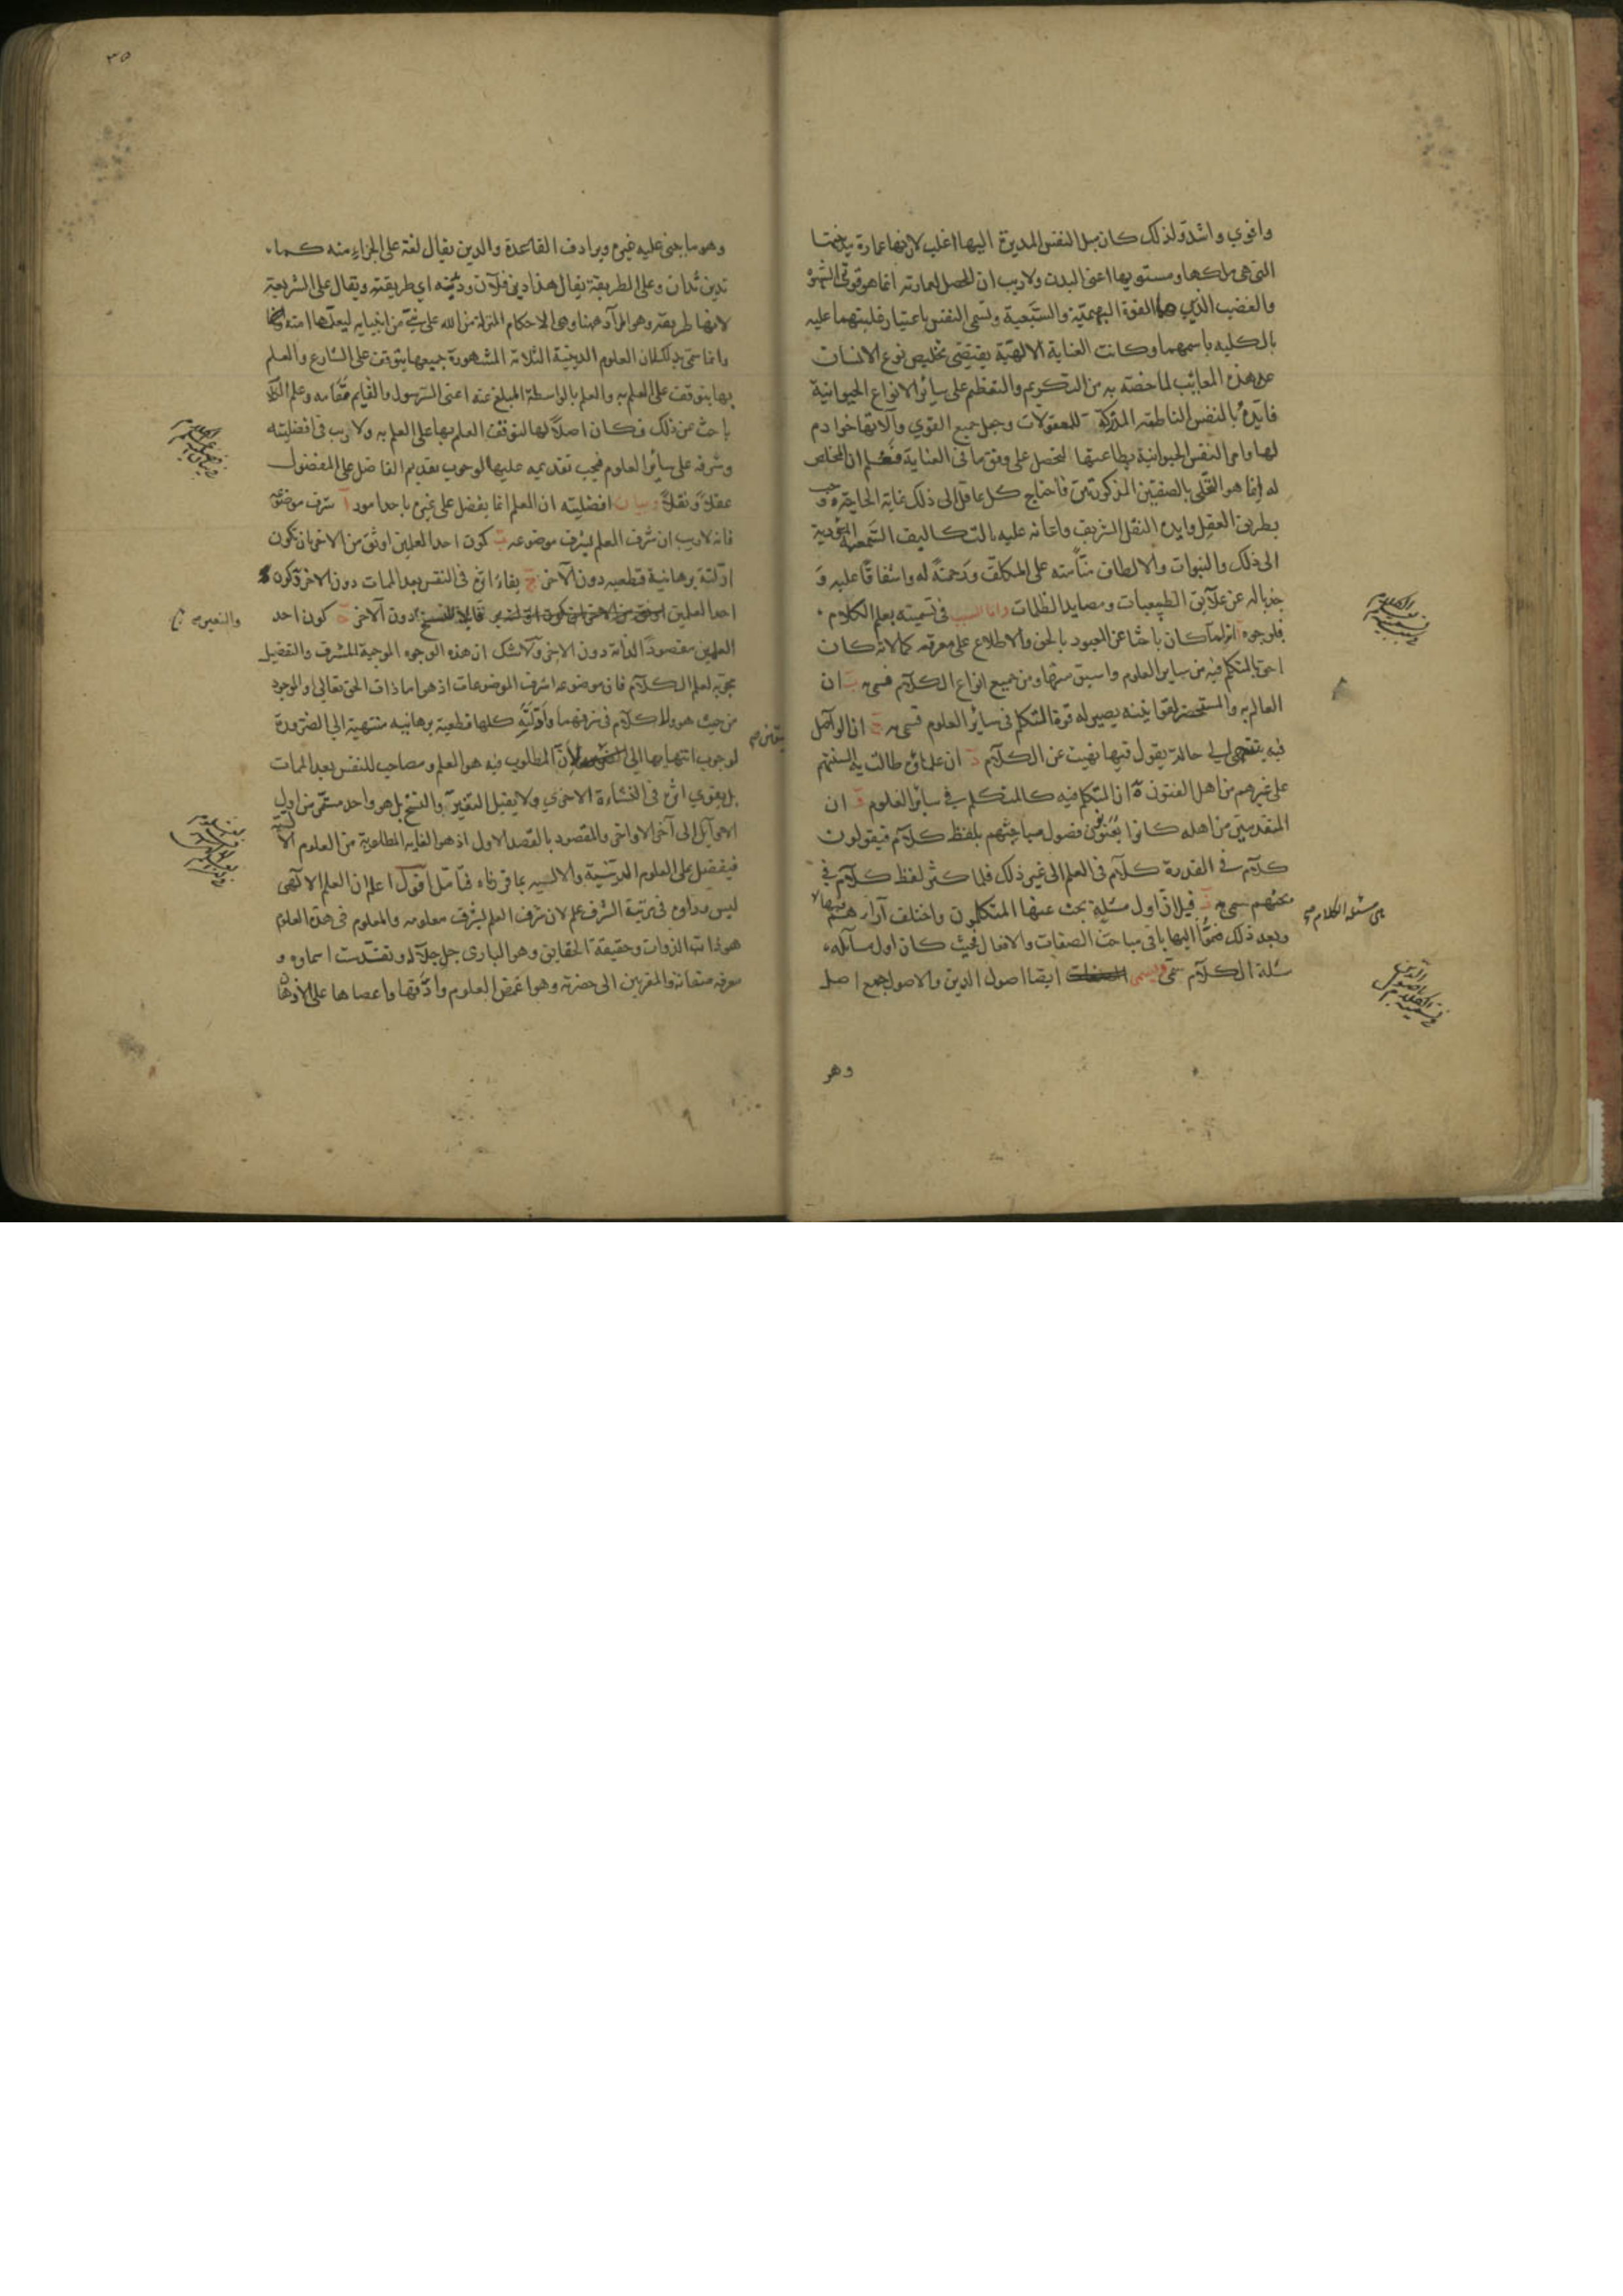 واغوي واشد ولذلك كان ميل النفس المدبرة اليها اغلب لان بها عمارة مدينتها
التي هي ملكها ومستوليها اعني البدن ولا ريب ان المحصل لعمارته انما هو قوتي الشهوة
والغضب الذين هما القوة البهيمية والسبعية وتسمي النفس باعتبار غلبتهما عليه
بالكليه باسمهما وكانت العناية الالهية يقتضي تخليص نوع الانسان
عن هذه المعايب لما خصه به من التكريم والتعظيم علي سائر الانواع الحيوانية
فايده بالنفس الناطقة المدركة للمعقولات وجعل جميع القوي وآلاتها خوادم
لها وامر النفس الحيوانية بطاعتها لتحصل علي وفق ما في العناية فعلم ان المخلص
له انما هو التحلي بالصفتين المذكورتين فاحتاج كل عاقل الي ذلك غاية الحاجة ووجب
بطريق العقل وايده النقل الشريف واعانه عليه بالتكاليف السمعية المؤدية
الي ذلك والنبوات والالطاف منا منه علي المكلف ورحمة له واشفاقا عليه و
جذبا له عن علائق الطبيعيات ومصايد الظلمات واما السبب في تسميته بعلم الكلام
فلوجوه آ انه لما كان باحثا عن المعبود بالحق والاطلاع علي معرفة كمالاته كان
احق بالمتكلم فيه من ساير العلوم واسبق منها ومن جميع انواع الكلام فسمي به ب ان
العالم به والمستحضر لقوانينه يصير له قوة المتكلم في سائر العلوم فسمي به ج ان الواصل
فيه ينتهي الي حالة يقول فيها نهيت عن الكلام د ان علمائه طالت به السنتهم
علي غيرهم من اهل الفنون ه ان المتكلم فيه كالمتكلم في سائر العلوم و ان
المتقدمين من اهله كانوا يعنونون فصول مباحثهم بلفظ كلام فيقولون
كلام في القدرة كلام في العلم الي غير ذلك فلما كثر لفظ كلام في
بحثهم سمي به ز قيل لان اول مسئلة بحث عنها المتكلمون واختلف آراؤهم فيها
هي مسئلة الكلام صح
وبعد ذلك ضموا اليها باقي مباحث الصفات والافعال فحيث كان اول مسائله
مسئلة الكلام سمي ويسمي ايضا اصول الدين والاصول جمع اصل
وهو
٣٥
وهو ما يبني عليه غيره ويرادف القاعدة والدين يقال لغة علي الجزاء منه كما
تدين تدان وعلي الطريقة يقال هذا دين فلان ودينه اي طريقته ويقال علي الشريعة
لانها طريقة وهو المراد ههنا وهي الاحكام المنزلة من الله علي نبي من انبيايه ليعلمها امته
وانما سمي بذلك لان العلوم الدينية الثلاثة المشهورة جميعها يتوقف علي الشارع والعلم
بها يتوقف علي العلم به والعلم بالواسطة المبلغ عنه اعني الرسول والقايم مقامه وعلم الكلام
باحث عن ذلك فكان اصلا لها لتوقف العلم بها علي العلم به ولا ريب في افضليته
وشرفه علي سائر العلوم فيجب تقديمه عليها لوجوب تقديم الفاضل علي المفضول
عقلا ونقلا وبيان افضليته ان العلم انما يفضل علي غيره باحد امور آ شرف موضوعه
فانه لا ريب ان شرف العلم بشرف موضوعه ب كون احد العلمين اوثق من الاخر بان تكون
ادلته برهانية قطعيه دون الآخر ج بقاء اثره في النفس بعد الممات دون الاخر د كون
احد العلمين قابلا للنسخ والتغيير دون الآخر ه كون احد
العلمين مقصودا لذاته دون الاخر ولا شك ان هذه الوجوه الموجبة للشرف والتفضيل
مجتمعة لعلم الكلام فان موضوعه اشرف الموضوعات اذ هو اما ذات الحق تعالي او الموجود
من حيث هو ولا كلام في شرفهما وادلته كلها قطعية برهانيه منتهية الي الضرورة
لوجوب انتهايها الي اليقين صح لان المطلوب فيه هو العلم ومصاحب للنفس بعد الممات
بل يقوي اثره في النشاءة الاخري ولا يقبل التغيير والنسخ بل هو واحد مستمر من اول
الاوايل الي آخر الاواخر والمقصود بالقصد الاول اذ هو الغاية المطلوبة من العلوم
فيفضل علي العلوم الدينية والالهيه بما قررناه فتأمل اقول اعلم ان العلم الالهي
ليس وراءه في مرتبة الشرف علم لان شرف العلم بشرف معلومه والمعلوم في هذه العلوم
هو ذات الذوات وحقيقة الحقايق وهو الباري جل جلاله وتقدست اسماوه و
معرفة صفاته والمقربين الي حضرته وهو اغمض العلوم وادقها واعصاها علي الاذهان